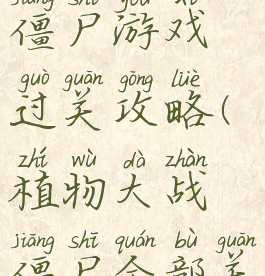 jiāng shī yóu xì
僵尸游戏
guò guān gōng lüè
过关攻略(
zhí wù dà zhàn
植物大战
jiāng shī quán bù guān
僵尸全部关